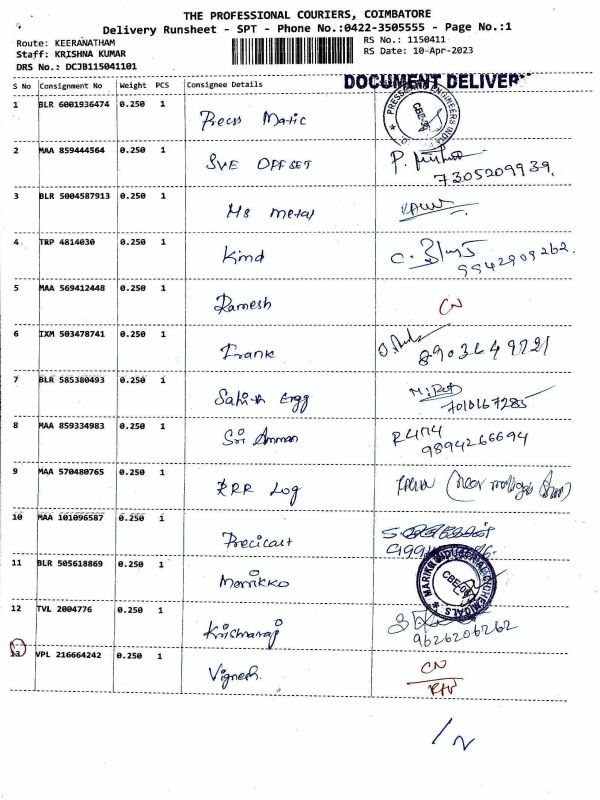 THE PROFESSIONAL COURIERS, COIMBATORE
Delivery Runsheet - SPT - Phone No.:0422-3505555 - Page No.:1
Route: KEERANATHAM
RS No.: 1150411
Staff: KRISHNA KUMAR
RS Date: 10-Apr-2023
DRS No.: DCJB115041101
S No Consignment No Weight PCS Consignee Details
DOCUMENT DELIVERY
1 BLR 6001936474 0.250 1 Press Matic
2 MAA 859444564 0.250 1 SVE OFFSET
7305209939.
3 BLR 5004587913 0.250 1 M8 metal
4 TRP 4814030 0.250 1 Kimd
9942909262.
5 MAA 569412448 0.250 1 Ramesh CN
6 IXM 503478741 0.250 1 Frank 8903649721
7 BLR 585380493 0.250 1 Engg
7010167285
8 MAA 859334983 0.250 1 Sri Amman
9894266694
9 MAA 570480765 0.250 1 RRR Log
10 MAA 101096587 0.250 1 Precicast
11 BLR 505618869 0.250 1 Marikko
12 TVL 2004776 0.250 1 Krishnaraj
9626206262
13 VPL 216664242 0.250 1 Vignesh. CN